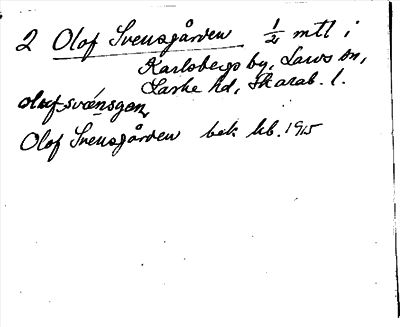 2 Olof Svensgården 1/2 mtl i
Karlsbergs by, Larvs sn,
Laske hd, Skarab. l.
olufsvänsgen,
Olof Svensgården bek kb. 1915